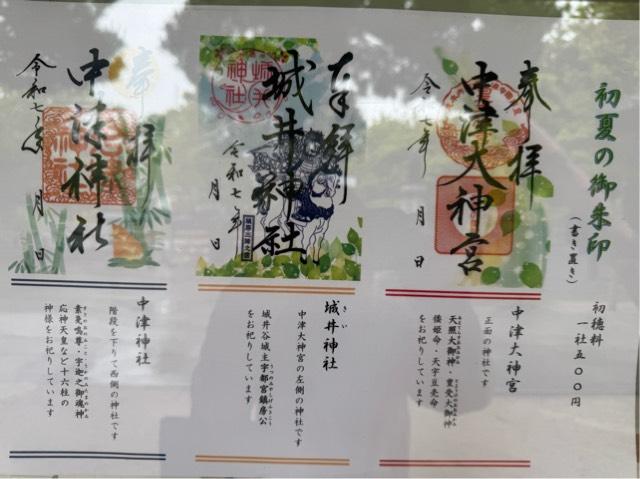 初夏の御朱印
(書き置き)
初穂料
一社五〇〇円
奉拝
中津大神宮
令和七年
月
日
中津大神宮
正面の神社です
天照大御神・豊受大御神
倭姫命・天宇豆売命
をお祀りしています
奉拝
城井神社
令和七年
月
日
城井神社
城井神社
きい
中津大神宮の左側の神社です
城井谷城主宇都宮鎮房公
をお祀りしています
奉拝
中津神社
令和七年
月
日
中津神社
階段を下りて西側の神社です
素戔嗚尊・宇迦之御魂神
応神天皇など十六柱の
神様をお祀りしています